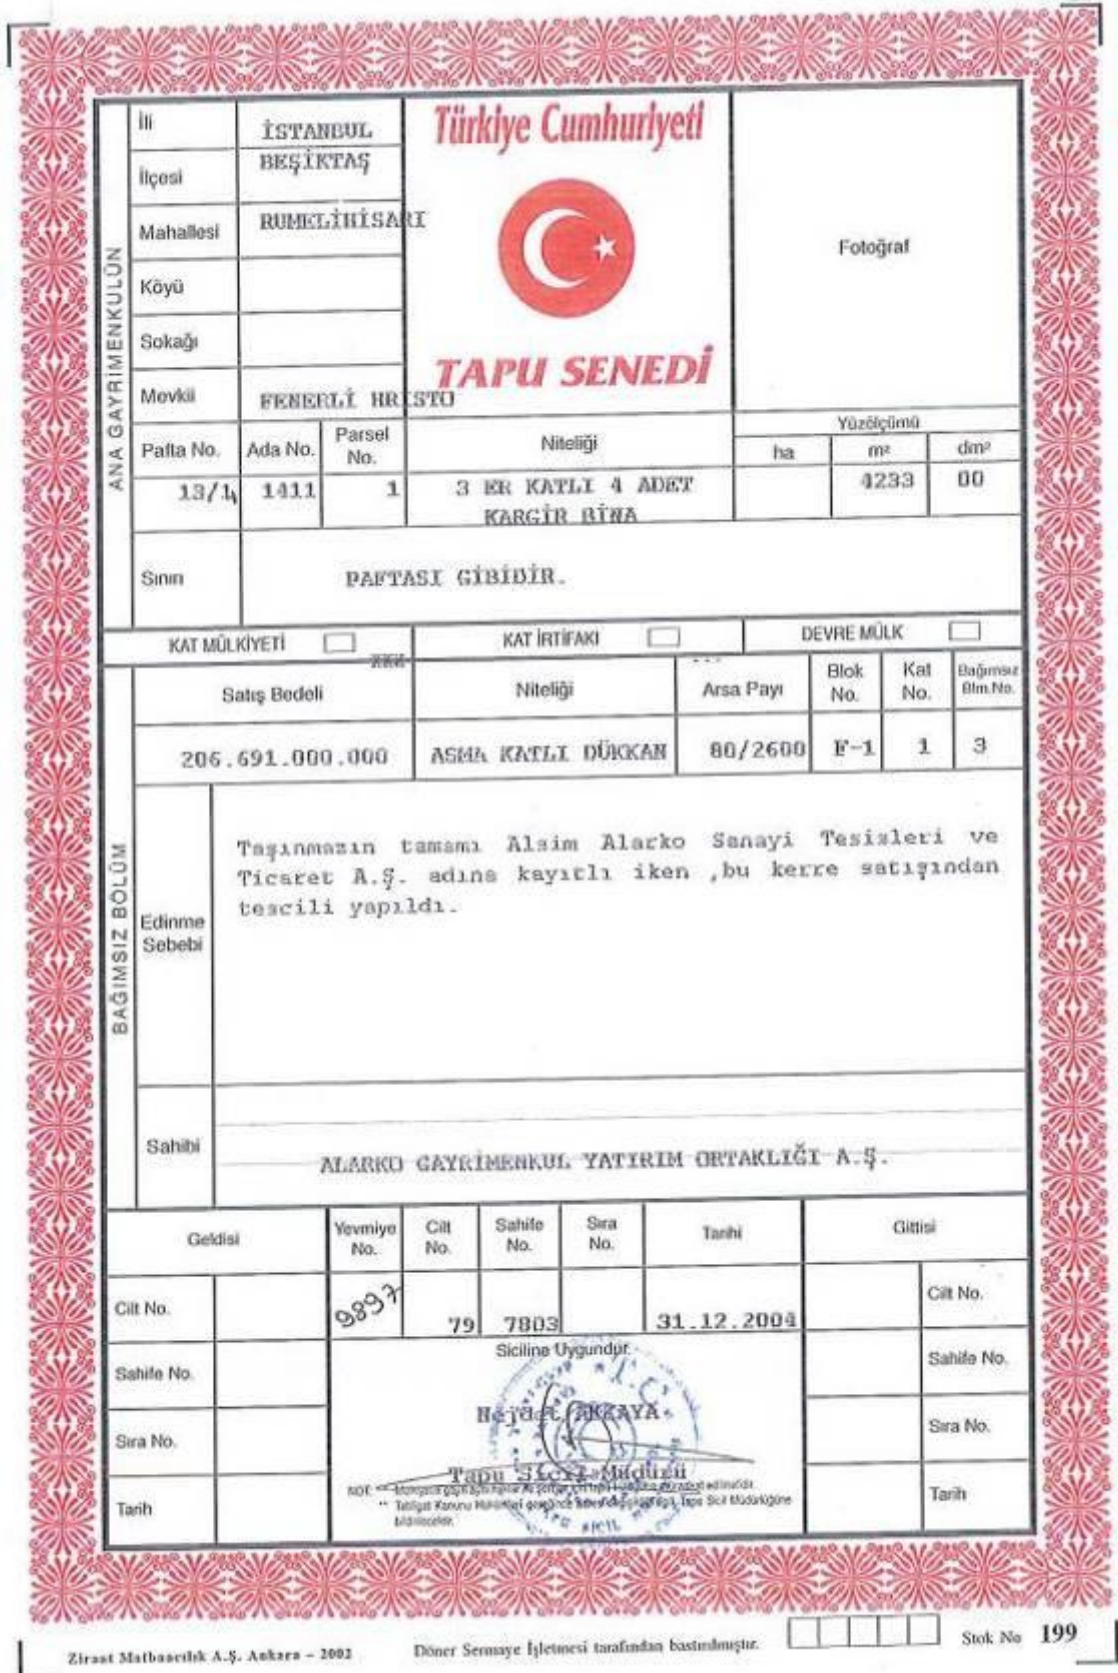 Türkiye Cumhuriyeti
TAPU SENEDİ
Fotoğraf
ANA GAYRİMENKULÜN
İli İSTANBUL
İlçesi BEŞİKTAŞ
Mahallesi RUMELİHİSARI
Köyü
Sokağı
Mevkii FENERLİ HRİSTO
Pafta No. Ada No. Parsel No. Niteliği Yüzölçümü
ha m² dm²
13/14 1411 1 3 ER KATLI 4 ADET 4233 00
KARGİR BİNA
Sınırı PAFTASI GİBİDİR.
KAT MÜLKİYETİ KAT İRTİFAKI DEVRE MÜLK
BAĞIMSIZ BÖLÜM
Satış Bedeli Niteliği Arsa Payı Blok No. Kat No. Bağımsız Blm.No.
206.691.000.000 ASMA KATLI DÜKKAN 80/2600 F-1 1 3
Edinme Sebebi
Taşınmazın tamamı Alsim Alarko Sanayi Tesisleri ve
Ticaret A.Ş. adına kayıtlı iken ,bu kerre satışından
tescili yapıldı.
Sahibi ALARKO GAYRİMENKUL YATIRIM ORTAKLIĞI A.Ş.
Geldisi Yevmiye No. Cilt No. Sahife No. Sıra No. Tarihi Gittisi
Cilt No. 9897 79 7803 31.12.2004 Cilt No.
Siciline Uygundur.
Sahife No. Sahife No.
Nejdet AKKAYA
Sıra No. Sıra No.
Tapu Sicil Müdürü
Tarih Tarih
Ziraat Matbaacılık A.Ş. Ankara – 2002
Döner Sermaye İşletmesi tarafından bastırılmıştır.
Stok No 199